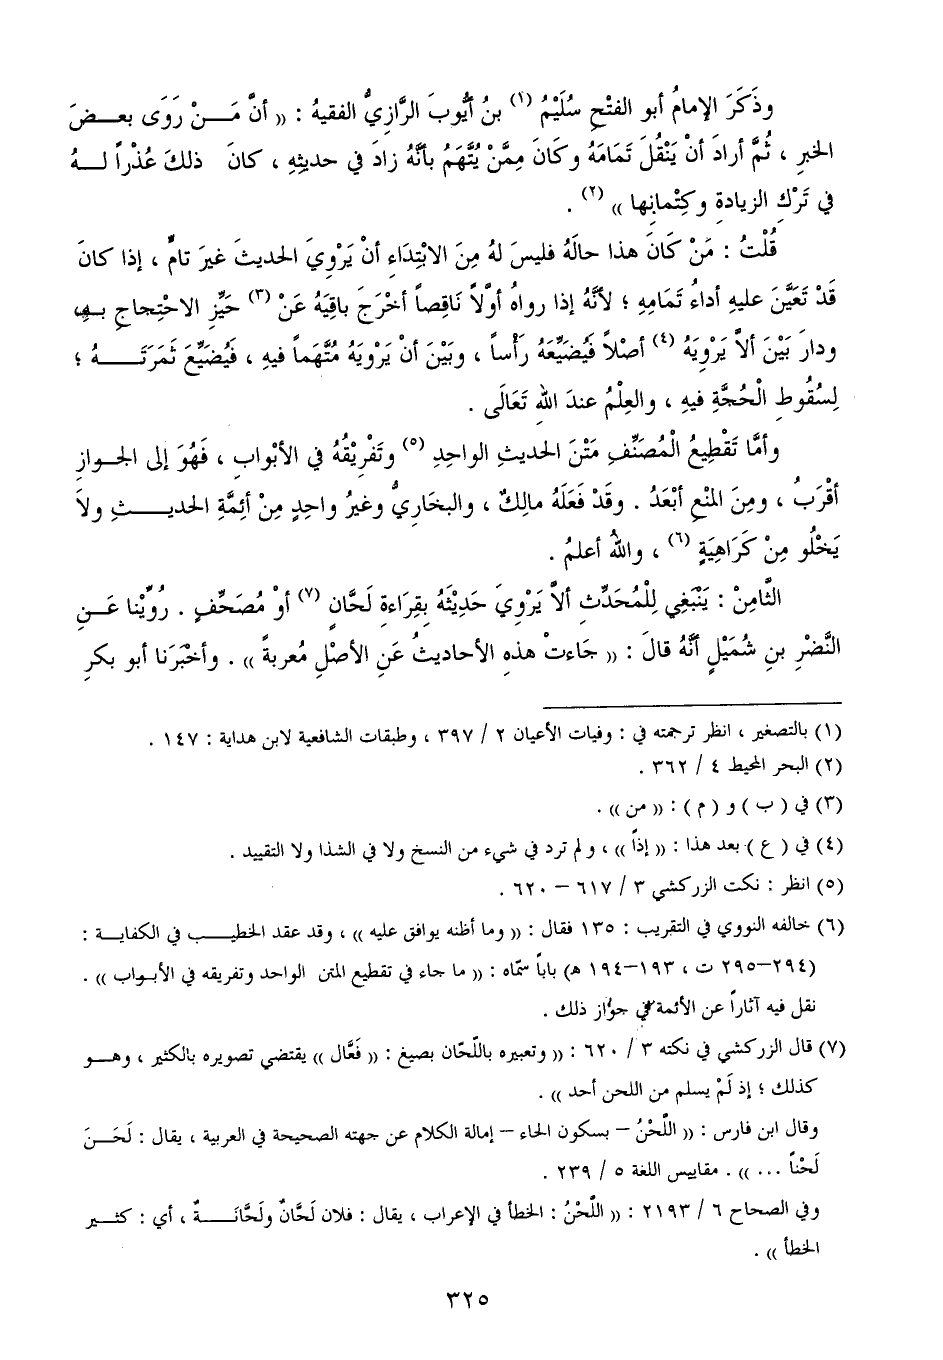 وذَكَرَ الإمامُ أبو الفتْحِ سُلَيْمُ (١) بنُ أيُّوبَ الرَّازِيُّ الفقيهُ : (( أنَّ مَـــنْ رَوَى بعــضَ
الخبرِ ، ثُمَّ أرادَ أنْ يَنْقُلَ تَمَامَهُ وكَانَ مِمَّنْ يُتَّهَمُ بأنَّهُ زادَ في حديثِهِ ، كانَ ذلكَ عُذْراً لـــهُ
في تَرْكِ الزيادةِ وكِتْمانِها )) (٢) .
قُلْتُ : مَنْ كَانَ هذا حالَهُ فليسَ لهُ مِنَ الابْتِداءِ أنْ يَرْوِيَ الحديثَ غيرَ تامٍّ ، إذا كانَ
قَدْ تَعَيَّنَ عليهِ أداءُ تَمَامِهِ ؛ لأنَّهُ إذا رواهُ أوَّلاً نَاقِصاً أخْرَجَ باقِيَهُ عَنْ (٣) حَيِّزِ الاحْتِجاجِ بــهِ،
ودارَ بَيْنَ ألاَّ يَرْوِيَهُ (٤) أصْلاً فَيُضَيِّعَهُ رَأْساً ، وبَيْنَ أنْ يَرْوِيَهُ مُتَّهَماً فيهِ ، فَيُضَيِّعَ ثَمَرَتَـــــهُ ؛
لِسُقُوطِ الْحُجَّةِ فيهِ ، والعِلْمُ عندَ اللهِ تَعَالَى .
وأمَّا تَقْطِيعُ الْمُصَنِّفِ مَتْنَ الحديثِ الواحِدِ (٥) وتَفْرِيقُهُ في الأبْوابِ ، فَهُوَ إلى الجــوازِ
أقْرَبُ ، ومِنَ المنْعِ أبْعَدُ . وقَدْ فَعَلَهُ مالِكٌ ، والبخَارِيُّ وغيرُ واحِدٍ مِنْ أئِمَّةِ الحديـــثِ ولاَ
يَخْلُو مِنْ كَرَاهِيَةٍ (٦) ، واللهُ أعلمُ .
الثَّامِنْ : يَنْبَغِي لِلْمُحَدِّثِ ألاَّ يَرْوِيَ حَدِيْثَهُ بِقِرَاءةِ لَحَّانٍ (٧) أوْ مُصَحِّفٍ . رُوِّيْنا عَــنِ
النَّضْرِ بنِ شُمَيْلٍ أنَّهُ قالَ : (( جَاءتْ هذهِ الأحاديثُ عَنِ الأصْلِ مُعربةً )) . وأخْبَرَنا أبو بكرِ
(١) بالتصغير ، انظر ترجمته في : وفيات الأعيان ٢ / ٣٩٧ ، وطبقات الشافعية لابن هداية : ١٤٧ .
(٢) البحر المحيط ٤ / ٣٦٢ .
(٣) في ( ب ) و ( م ) : (( من )) .
(٤) في ( ع ) بعد هذا : (( إذاً )) ، ولم ترد في شيء من النسخ ولا في الشذا ولا التقييد .
(٥) انظر : نكت الزركشي ٣ / ٦١٧ – ٦٢٠ .
(٦) خالفه النووي في التقريب : ١٣٥ فقال : (( وما أظنه يوافق عليه )) ، وقد عقد الخطيــب في الكفايــة :
(٢٩٤–٢٩٥ ت ، ١٩٣–١٩٤ هـ) باباً سمّاه : (( ما جاء في تقطيع المتن الواحد وتفريقه في الأبــواب )) .
نقل فيه آثاراً عن الأئمة في جواز ذلك .
(٧) قال الزركشي في نكته ٣ / ٦٢٠ : (( وتعبيره باللّحّان بصيغ : (( فَعَّال )) يقتضي تصويره بالكثير ، وهــو
كذلك ؛ إذ لَمْ يسلم من اللحن أحد )) .
وقال ابن فارس : (( اللّحْنُ – بسكون الحاء – إمالة الكلام عن جهته الصحيحة في العربية ، يقال : لَحَــنَ
لَحْناً ... )) . مقاييس اللغة ٥ / ٢٣٩ .
وفي الصحاح ٦ / ٢١٩٣ : (( اللّحْنُ : الخطأ في الإعراب ، يقال : فلان لَحَّانٌ ولَحَّانَـــةٌ ، أي : كثــير
الخطأ )) .
٣٢٥